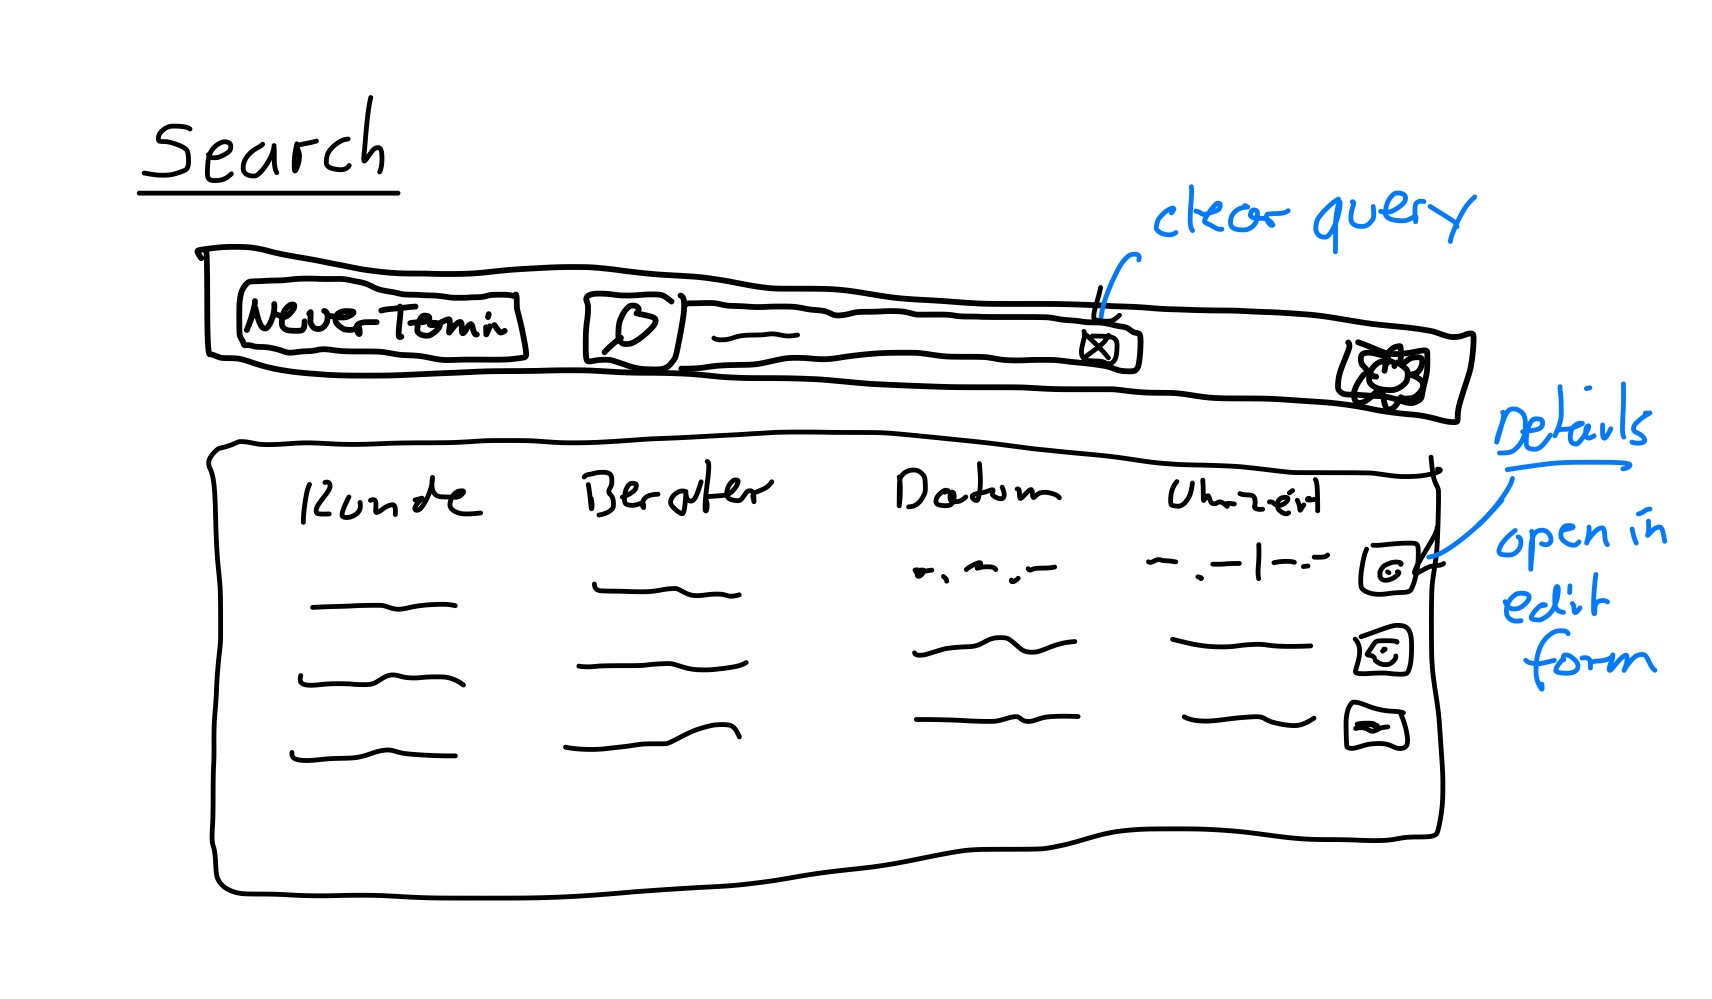 Search
clear query
Neuer Termin
Details
Kunde Berater Datum Uhrzeit
open in
edit
form